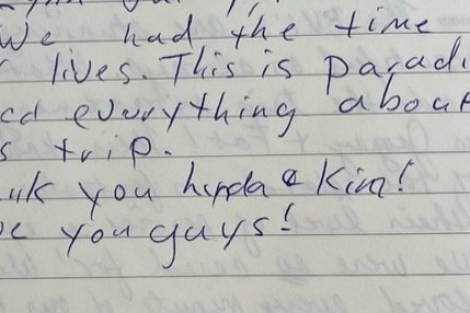 We had the time
lives. This is paradi
ed everything about
s trip.
nk you & Kim!
ve you guys!